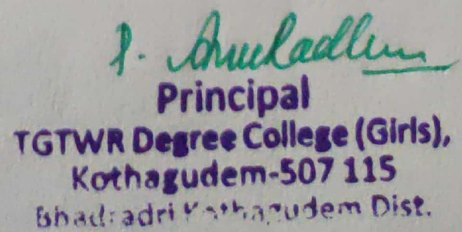 P. Anuradha
Principal
TGTWR Degree College (Girls),
Kothagudem-507 115
Bhadradri Kothagudem Dist.